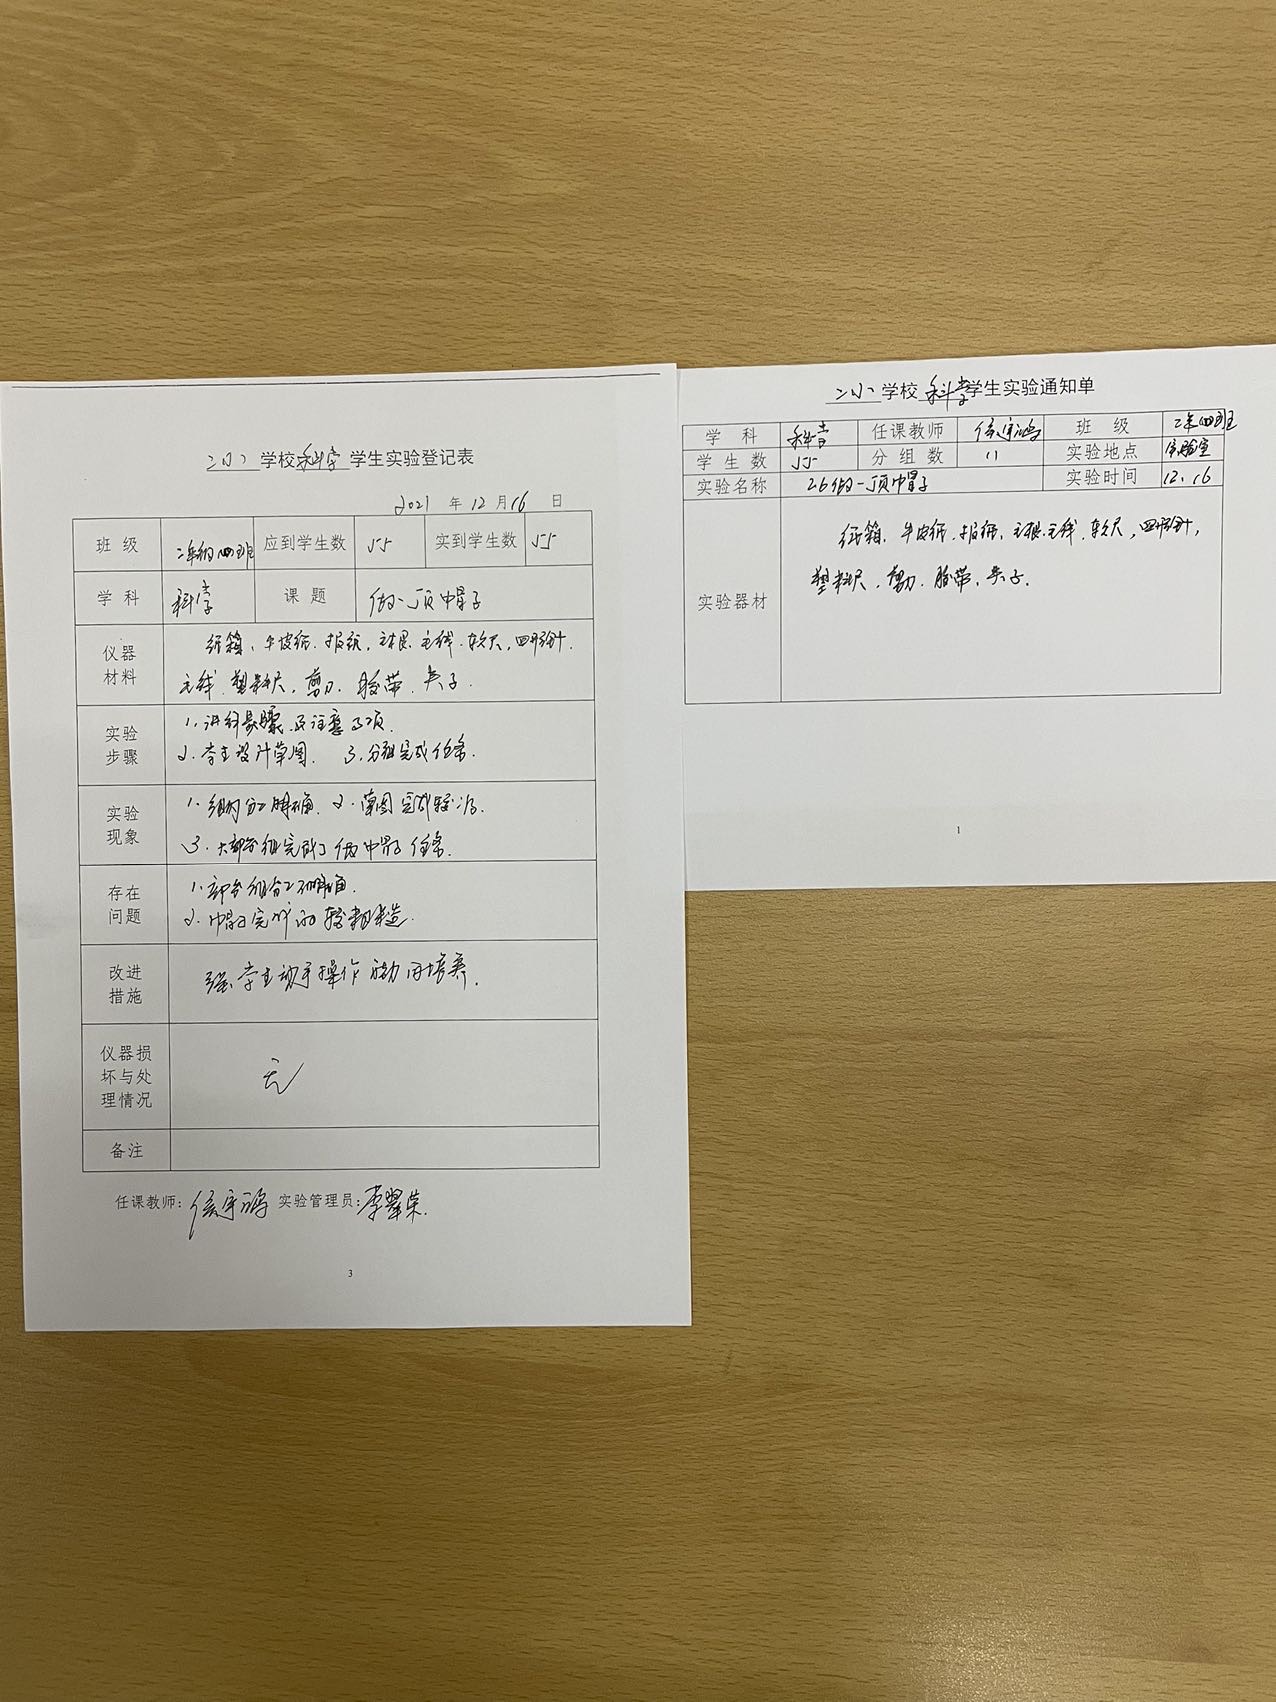 二小 学校 科学 学生实验登记表
2021 年 12 月 16 日
班 级 二年级四班 应到学生数 55 实到学生数 55
学 科 科学 课 题 做一顶帽子
仪器材料 纸箱、牛皮纸、报纸、毛线、软尺、
毛线、塑料尺、剪刀、胶带、夹子.
实验步骤 1、讲解步骤及注意事项.
2、学生设计草图. 3、分组完成任务.
实验现象 1、组内分工明确. 2、草图完成较好.
3、大部分组完成了做帽子任务.
存在问题 1、部分组分工不明确.
2、帽子完成的较粗糙.
改进措施 学生动手操作能力的培养.
仪器损坏与处理情况 无
备注
任课教师: 侯宇鸿 实验管理员: 李翠荣
3
二小 学校 科学 学生实验通知单
学 科 科学 任课教师 侯宇鸿 班 级 二年四班
学 生 数 55 分 组 数 11 实验地点 实验室
实验名称 26做一顶帽子 实验时间 12.16
实验器材 纸箱、牛皮纸、报纸、毛线、软尺、
塑料尺、剪刀、胶带、夹子.
1